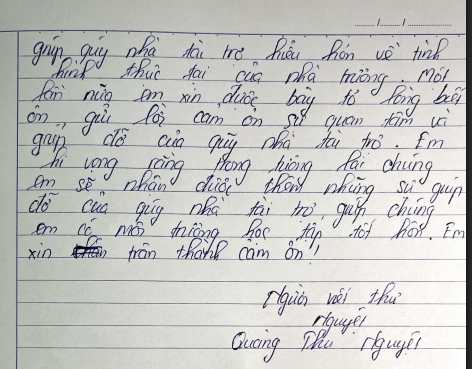 giúp quý nhà tài trợ hiểu hơn về tình
hình thực tại của nhà trường. Một
lần nữa em xin được bày tỏ lòng biết
ơn gửi lời cảm ơn sự quan tâm và
giúp đỡ của quý nhà tài trợ. Em
hi vọng rằng trong tương lai chúng
em sẽ nhận được thêm những sự giúp
đỡ của quý nhà tài trợ giúp chúng
em có môi trường học tập tốt hơn. Em
xin trân thành cảm ơn!
Người viết thư
Nguyệt
Quàng Thu Nguyệt